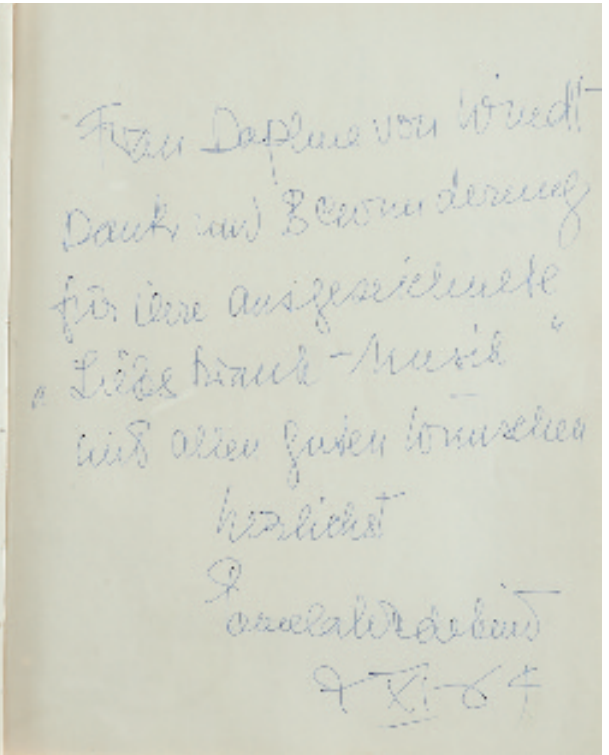 Frau Daphne von
Dank und Bewunderung
für ihre ausgezeichnete
„Liebestrank-Musik“
mit allen guten Wünschen
herzlichst
Pamela Wedekind
XI 64